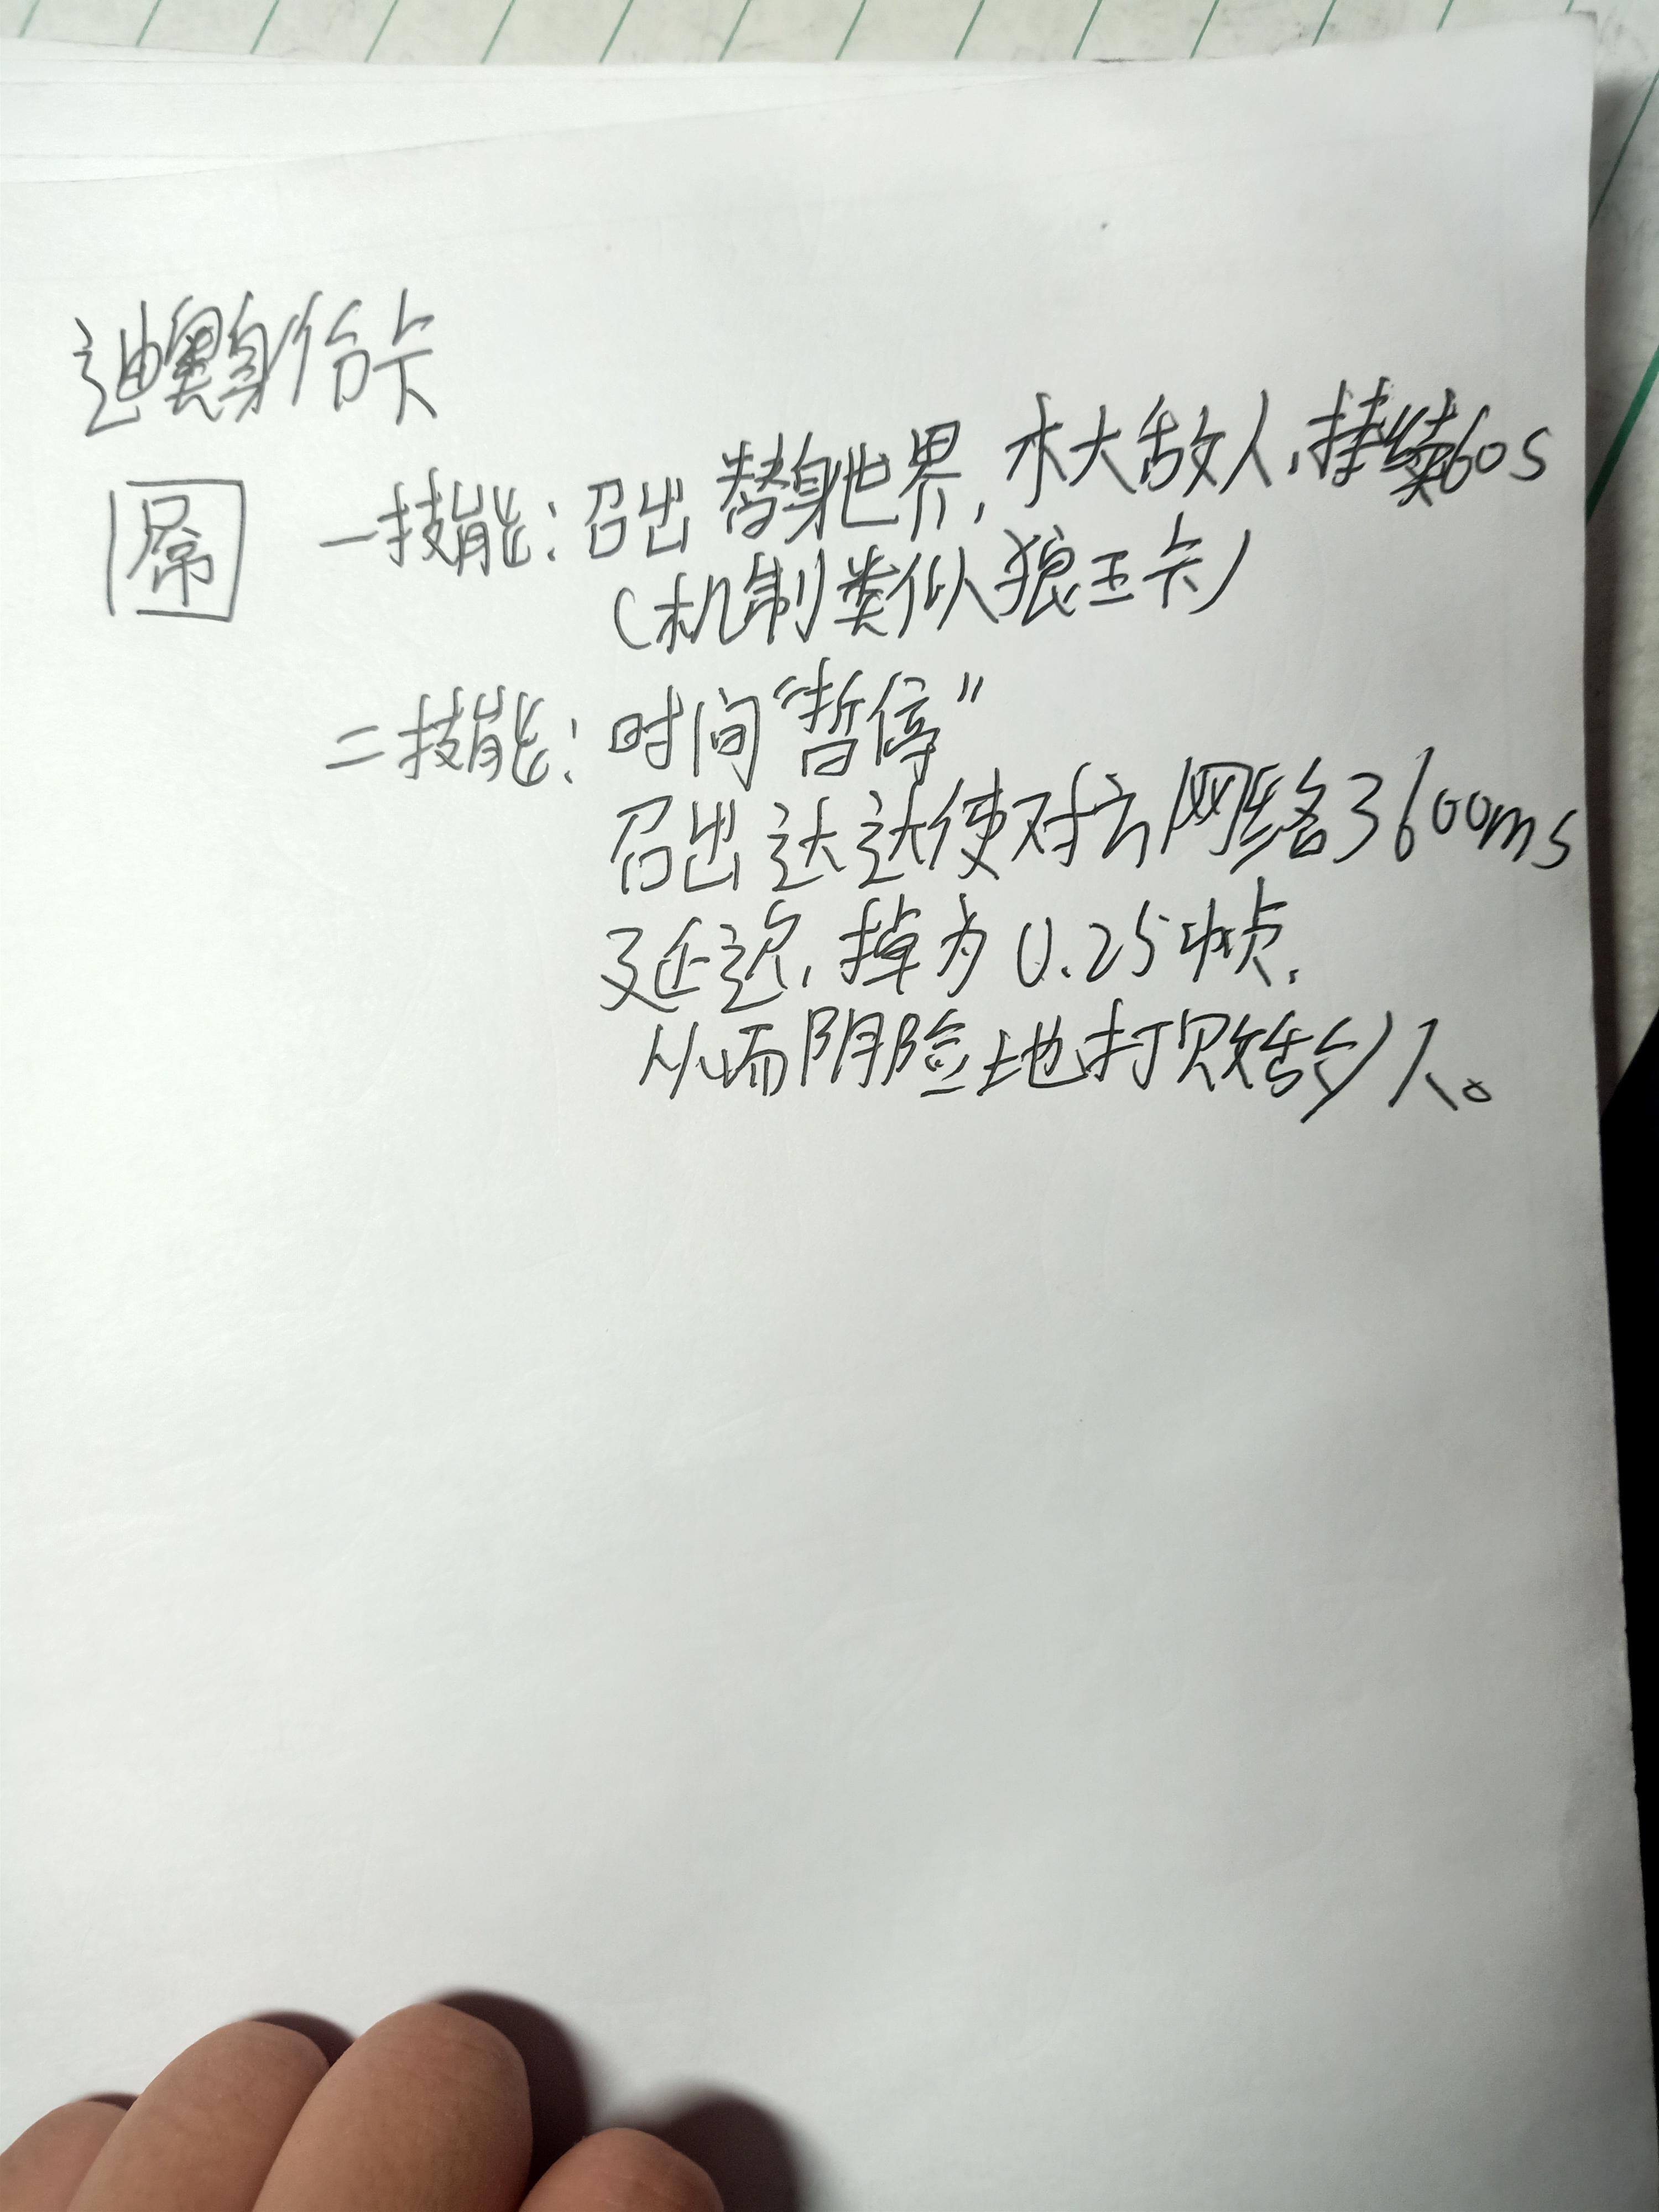 迪奥身份卡
屌
一技能：召出替身世界，木大敌人，持续60s
（机制类似狼王卡）
二技能：时间“暂停”
召出达达使对方网络3600ms
延迟，掉为0.25帧，
从而阴险地打败敌人。